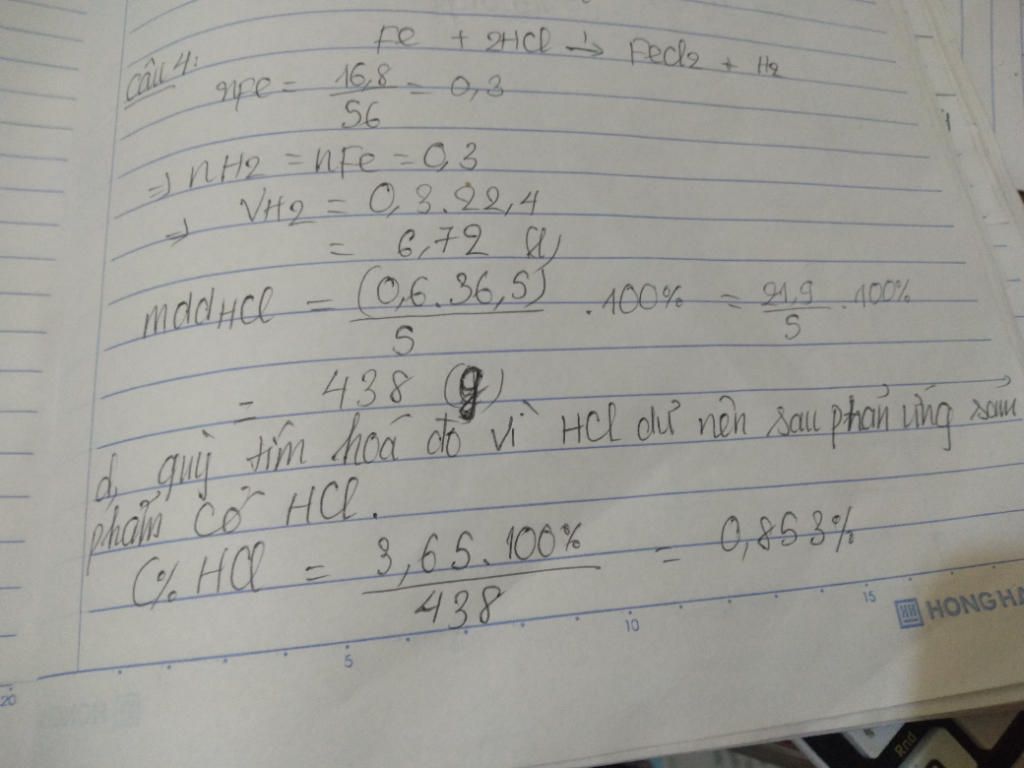 Fe + 2HCl → FeCl2 + H2
Câu 4:
nFe = 16,8/56 = 0,3
=> nH2 = nFe = 0,3
=> VH2 = 0,3.22,4
= 6,72 (l)
mddHCl = (0,6.36,5)/5 .100% = 21,9/5 .100%
= 438 (g)
d, quỳ tím hoá đỏ vì HCl dư nên sau phản ứng sản
phẩm có HCl.
C% HCl = 3,65.100%/438 = 0,853%
5 10 15 HONG HA
20
Rnd